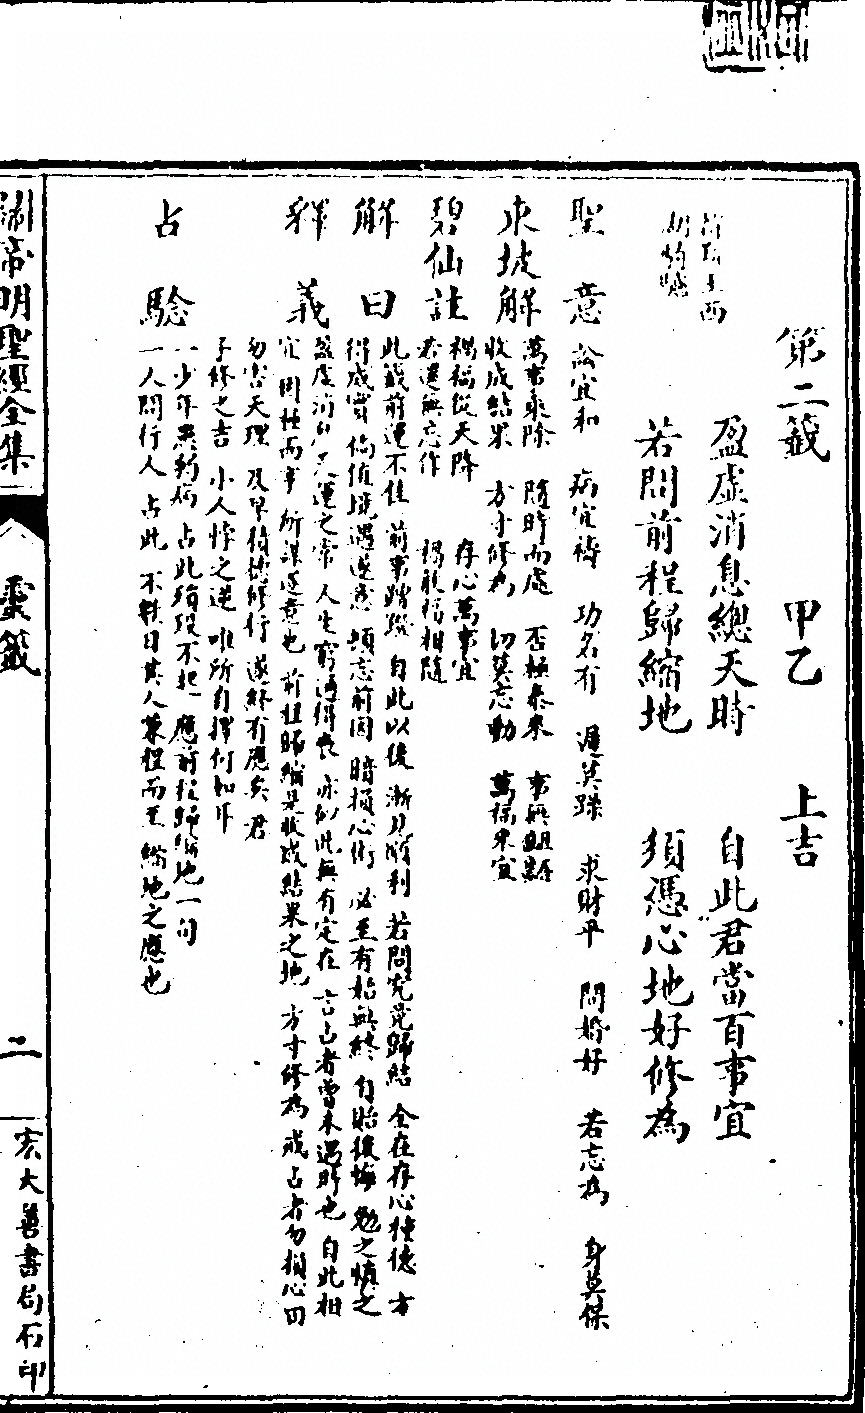 第二籤 甲乙 上吉
盈虛消息總天時 自此君當百事宜
若問前程歸縮地 須憑心地好修為
聖意 訟宜和 病宜禱 功名有 遲莫躁 求財平 問婚好 若忘為 身莫保
東坡解 萬事乘除 隨時而處 否極泰來 事無齟齬
收成結果 方寸修為 切莫忘動 萬福來宜
碧仙註 禍福從天降 存心萬事宜
若還無忘作 禍脫福相隨
解曰 此籤前運不佳 前事蹭蹬 自此以後 漸見勝利 若問究竟歸結 全在存心種德 方
得成實 倘值境遇遂意 頓忘前因 暗損心術 必至有始無終 自貽後悔 勉之慎之
釋義 盈虛消息 天運之常 人生窮通得喪 亦似此無有定在 言占者嘗未遇時也 自此相
宜 周性而事 所謀遂意也 前程歸縮是收成結果之地 方寸修為 戒占者勿損心田
勿害天理 及早積德修行 遂終有應矣 君
子修之吉 小人悖之逆 唯所自擇何如耳
占驗 一少年患弱病 占此 後不起 應前程歸縮地一句
一人問行人 占此 不數日其人兼程而至 縮地之應也
關帝明聖經全集
靈籤
二
宏大善書局石印